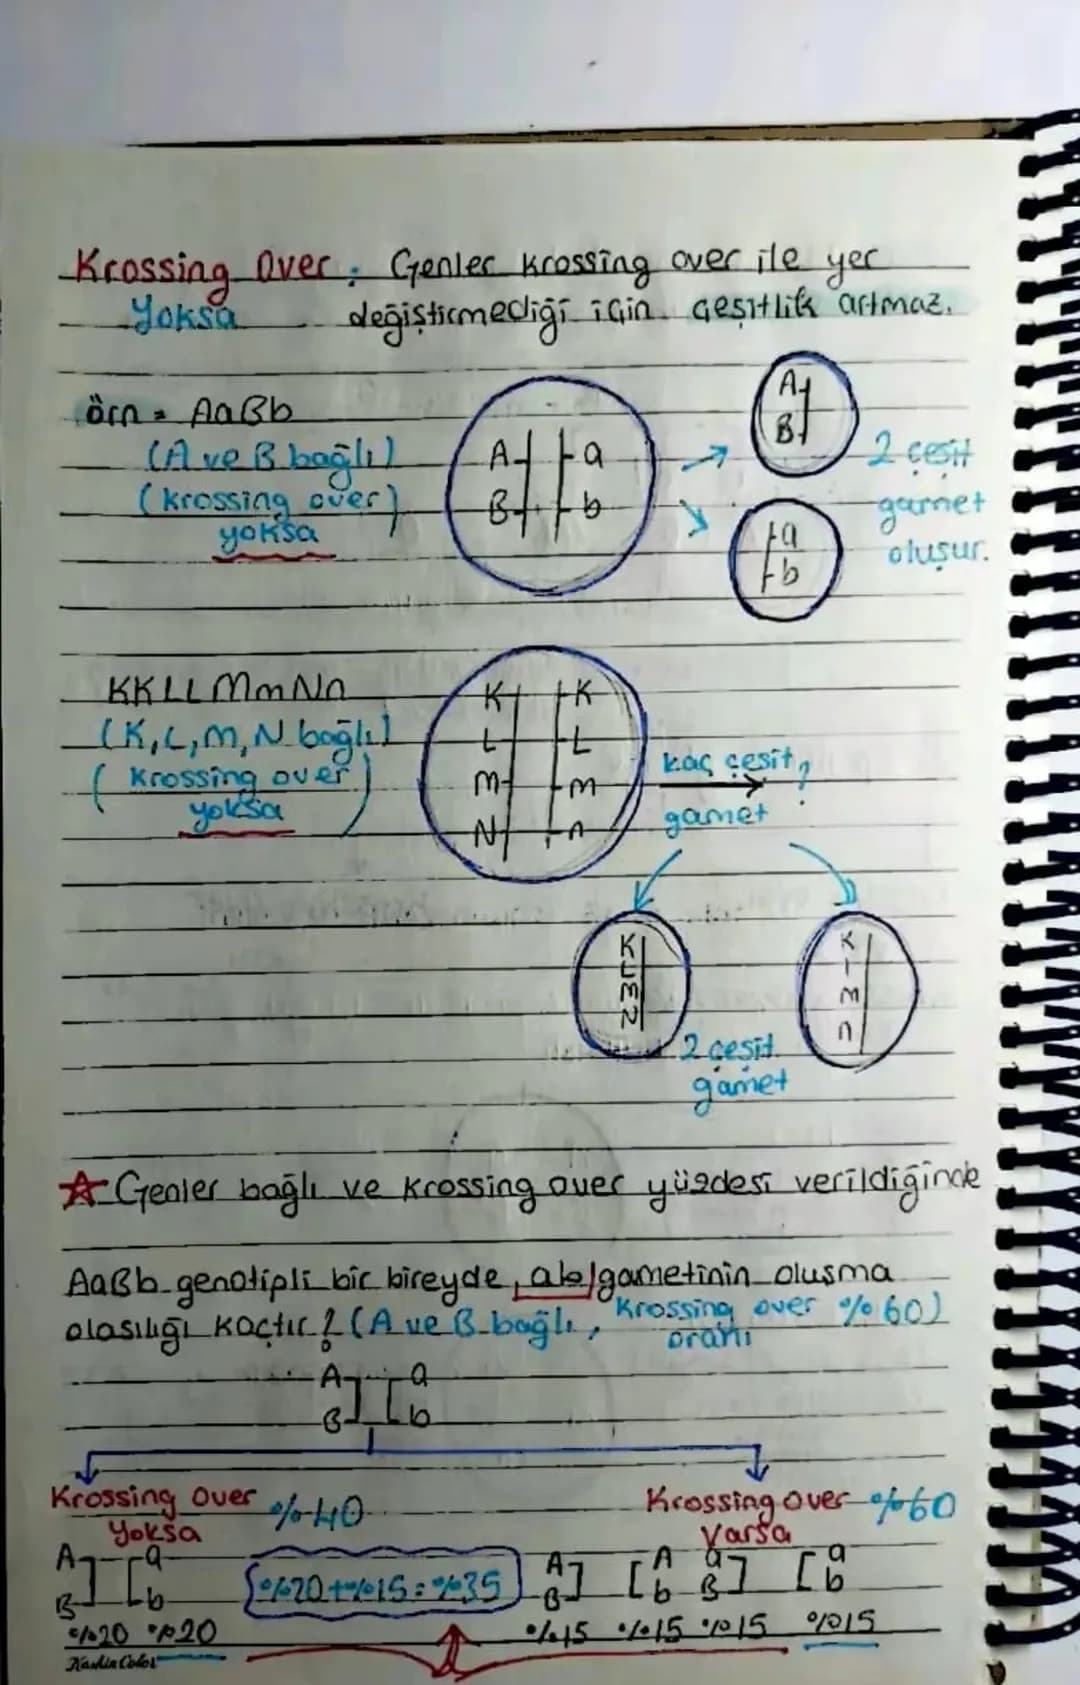 Krossing Over : Genler krossing over ile yer
Yoksa değiştirmediği için çeşitlik artmaz.
örn = AaBb
(A ve B bağlı)
(krossing over)
yoksa
A a
B b
A
B
a
b
2 çeşit
gamet
oluşur.
KKLLMmNn
(K, L, M, N bağlı)
(Krossing over)
yoksa
K K
L L
M m
N n
kaç çeşit ?
gamet
K
L
M
N
K
L
m
n
2 çeşit
gamet
☆ Genler bağlı ve Krossing over yüzdesi verildiğinde
AaBb genotipli bir bireyde, ab gametinin oluşma
olasılığı kaçtır? (A ve B bağlı, Krossing over %60)
oranı
A a
B b
Krossing Over %40
Yoksa
Krossing over %60
Varsa
A a
B b
%20 %20
%20+%15=%35
A A a a
B b B b
%15 %15 %15 %15